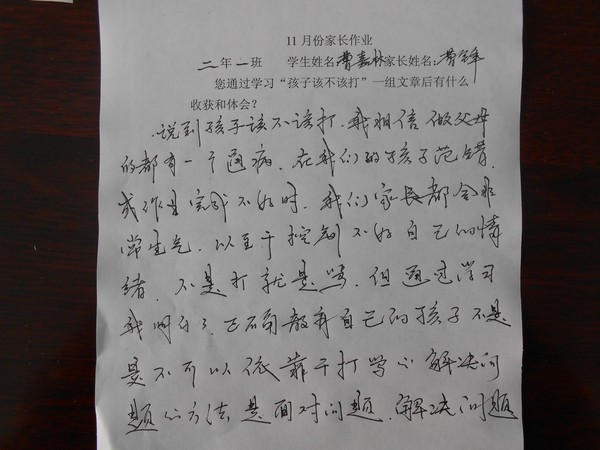 11月份家长作业
二年一班 学生姓名曹嘉林家长姓名:曹
您通过学习“孩子该不该打”一组文章后有什么
收获和体会?
说到孩子该不该打.我相信做父母
的都有一个通病.在我们的孩子范错.
或作业完成不好时.我们家长都会非
常生气.以至于控制不好自己的情
绪.不是打就是骂.但通过学习
我明白了.正确教育自己的孩子不是
是不可以依靠于打骂心解决问
题的方法.是面对问题.解决问题